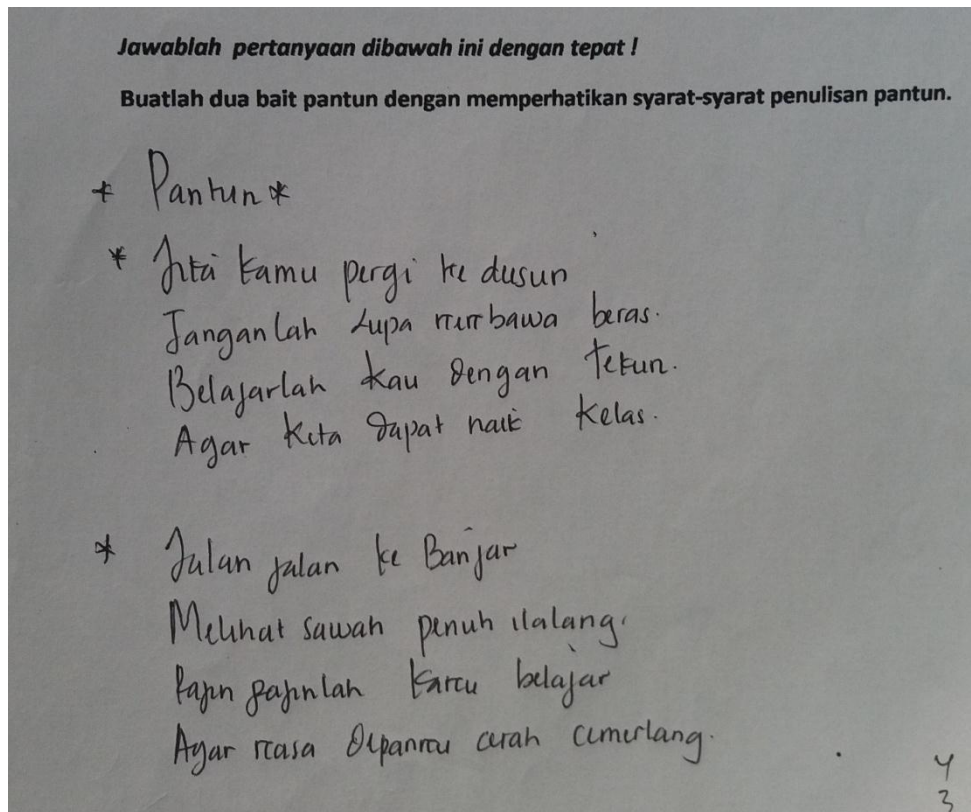 Jawablah pertanyaan dibawah ini dengan tepat !
Buatlah dua bait pantun dengan memperhatikan syarat-syarat penulisan pantun.
* Pantun *
* Jika kamu pergi ke dusun
Janganlah Lupa membawa beras.
Belajarlah kau dengan tekun.
Agar kita dapat naik kelas.
* Jalan jalan ke Banjar
Melihat sawah penuh ilalang.
Rajin rajinlah kamu belajar
Agar masa depanmu cerah cemerlang.
4
3